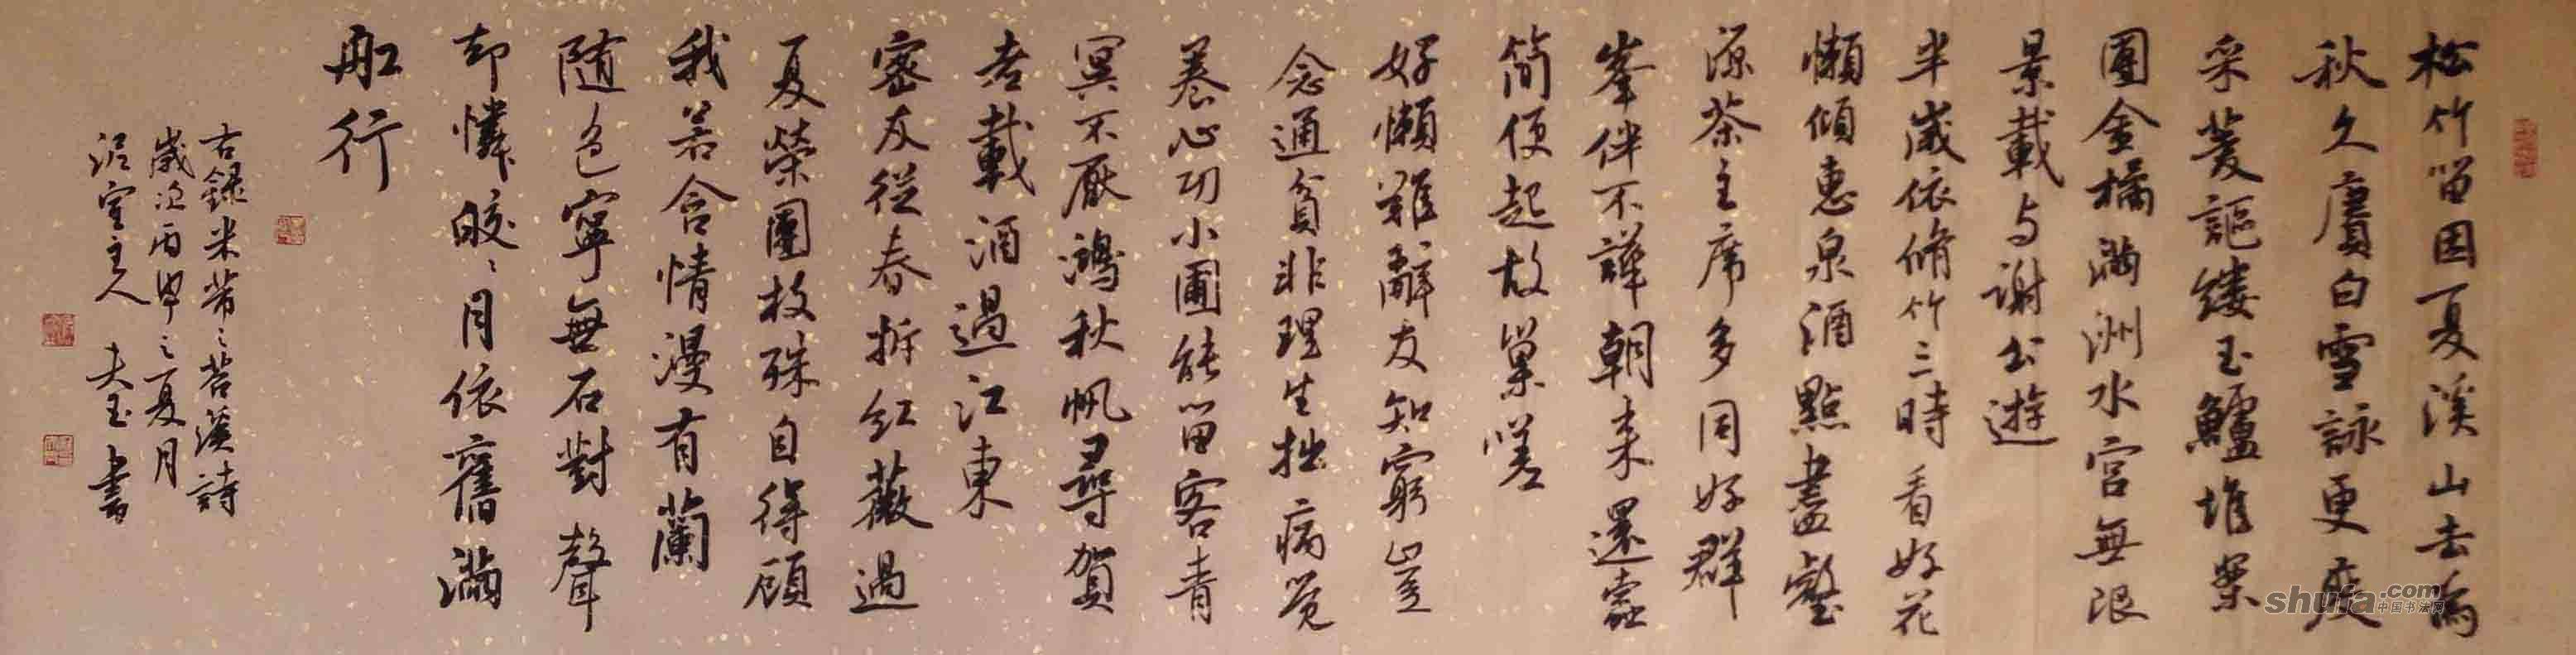 松竹留因夏溪山去為
秋久賡白雪詠更度
采菱謳缕玉鱸堆案
團金橘滿洲水宮無限
景載与謝公遊
半歲依脩竹三時看好花
懶傾惠泉酒點盡壑
源茶主席多同好群
峯伴不譁朝来還蠹
简便起故巢嗟
好懶難辭友知窮豈
念通貧非理生拙病觉
養心功小圃能留客青
冥不厭鴻秋帆尋賀
老載酒過江東
密友從春拆紅薇過
夏榮團枝殊自得顧
我若含情漫有蘭
随色寧無石對聲
却憐皎〻月依舊滿
舡行
古録米芾之苕溪詩
歲次丙申之夏月
室主人 玉書
shufa.com
中国书法网